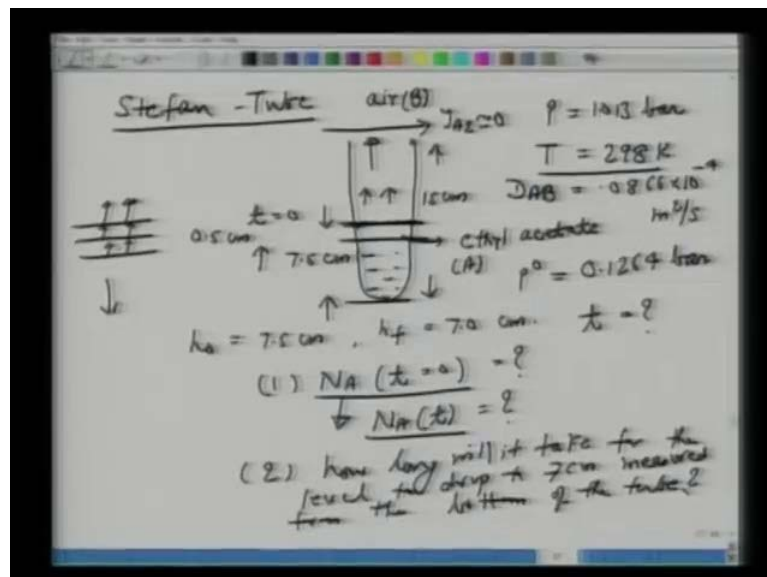 Stefan - Tube air(B)
JAZ=0 P = 1.013 bar
T = 298 K
DAB = .0866×10⁻⁴ m²/s
15 cm
t=0
0.5 cm
7.5 cm
ethyl acetate
(A)
p⁰ = 0.1264 bar
h₀ = 7.5 cm, hf = 7.0 cm. t = ?
(1) NA (t=0) = ?
NA(t) = ?
(2) how long will it take for the
level to drop to 7cm measured
from the bottom of the tube?